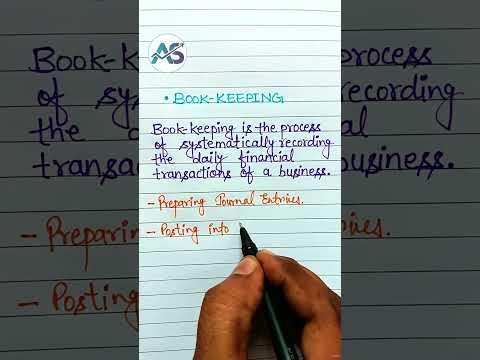 AS
• BOOK-KEEPING
Book-keeping is the process
of systematically recording
the daily financial
transactions of a business.
- Preparing Journal Entries.
- Posting into